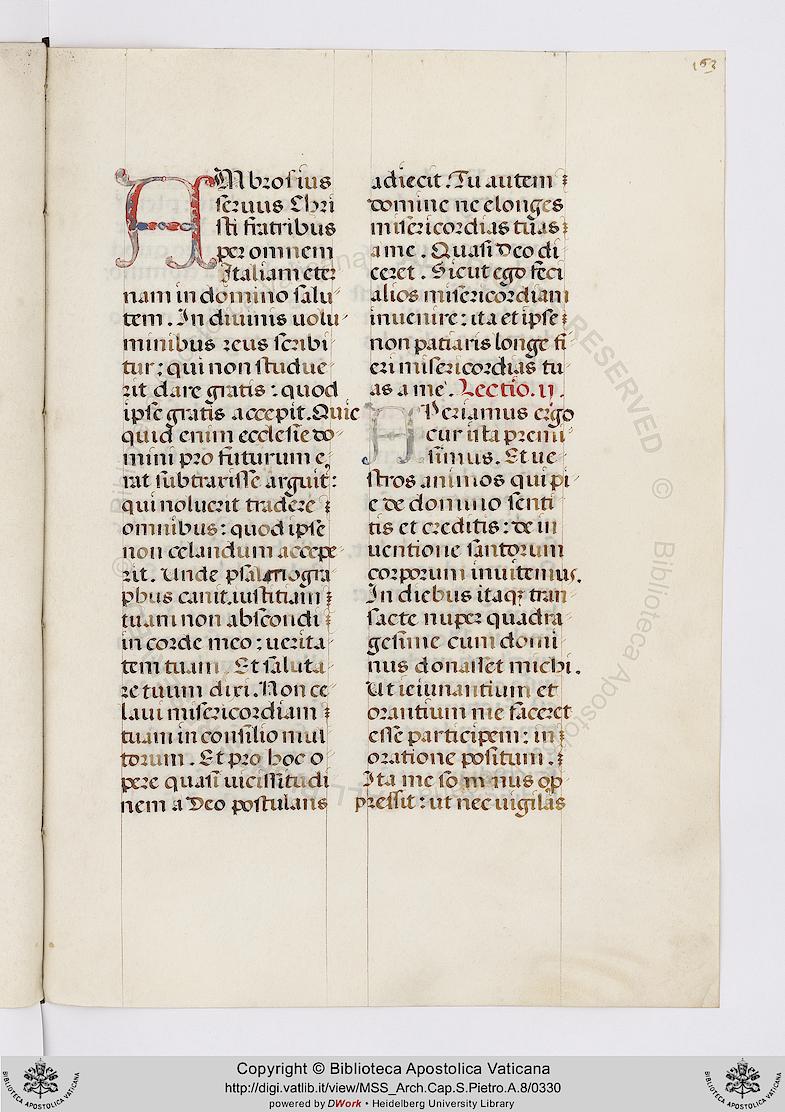 163
AMbrosius
seruus Chri
sti fratribus
per omnem
Italiam eter
nam in domino salu
tem. In diuinis uolu
minibus reus scribi
tur: qui non studue
rit dare gratis: quod
ipse gratis accepit. Quic
quid enim ecclesie do
mini pro futurum e
rat subtraxisse arguit:
qui noluerit tradere
omnibus: quod ipse
non celandum accepe
rit. Unde psalmogra
phus canit. iustitiam
tuam non abscondi
in corde meo: uerita
tem tuam. Et saluta
re tuum dixi. Non ce
laui misericordiam
tuam in consilio mul
torum. Et pro hoc o
pere quasi uicissitudi
nem a Deo postulans
adiecit. Tu autem
domine ne elonges
misericordias tuas
a me. Quasi Deo di
ceret. Sicut ego feci
alios misericordiam
inuenire: ita et ipse
non patiaris longe fi
eri misericordias tu
as a me. Lectio. ij.
APeriamus ergo
cur ista premi
simus. Et ue
stros animos qui pi
e de domino senti
tis et creditis: de in
uentione santorum
corporum inuitemus.
In diebus itaqꝫ tran
sacte nuper quadra
gesime cum domi
nus donasset michi.
Ut ieiunantium et
orantium me faceret
esse participem: in
oratione positum.
Ita me somnus op
pressit: ut nec uigilās
Copyright © Biblioteca Apostolica Vaticana
http://digi.vatlib.it/view/MSS_Arch.Cap.S.Pietro.A.8/0330
powered by DWork • Heidelberg University Library
BIBLIOTECA APOSTOLICA VATICANA
BIBLIOTECA APOSTOLICA VATICANA